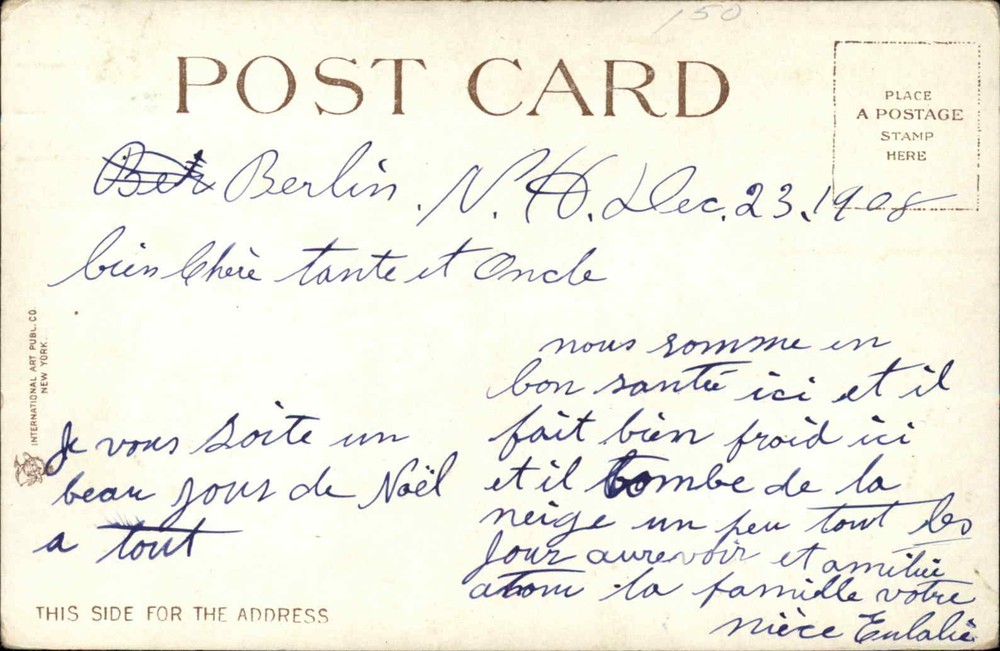 150
POST CARD
PLACE
A POSTAGE
STAMP
HERE
Berlin, N. H. Dec. 23, 1908
bien Chère tante et Oncle
INTERNATIONAL ART PUBL. CO.
NEW YORK.
Je vous soite un
beau jour de Noël
a tout
nous somme en
bon santé ici et il
fait bien froid ici
et il tombe de la
neige un peu tout les
jour aurevoir et amitié
a la famille votre
nièce Eulalie
THIS SIDE FOR THE ADDRESS